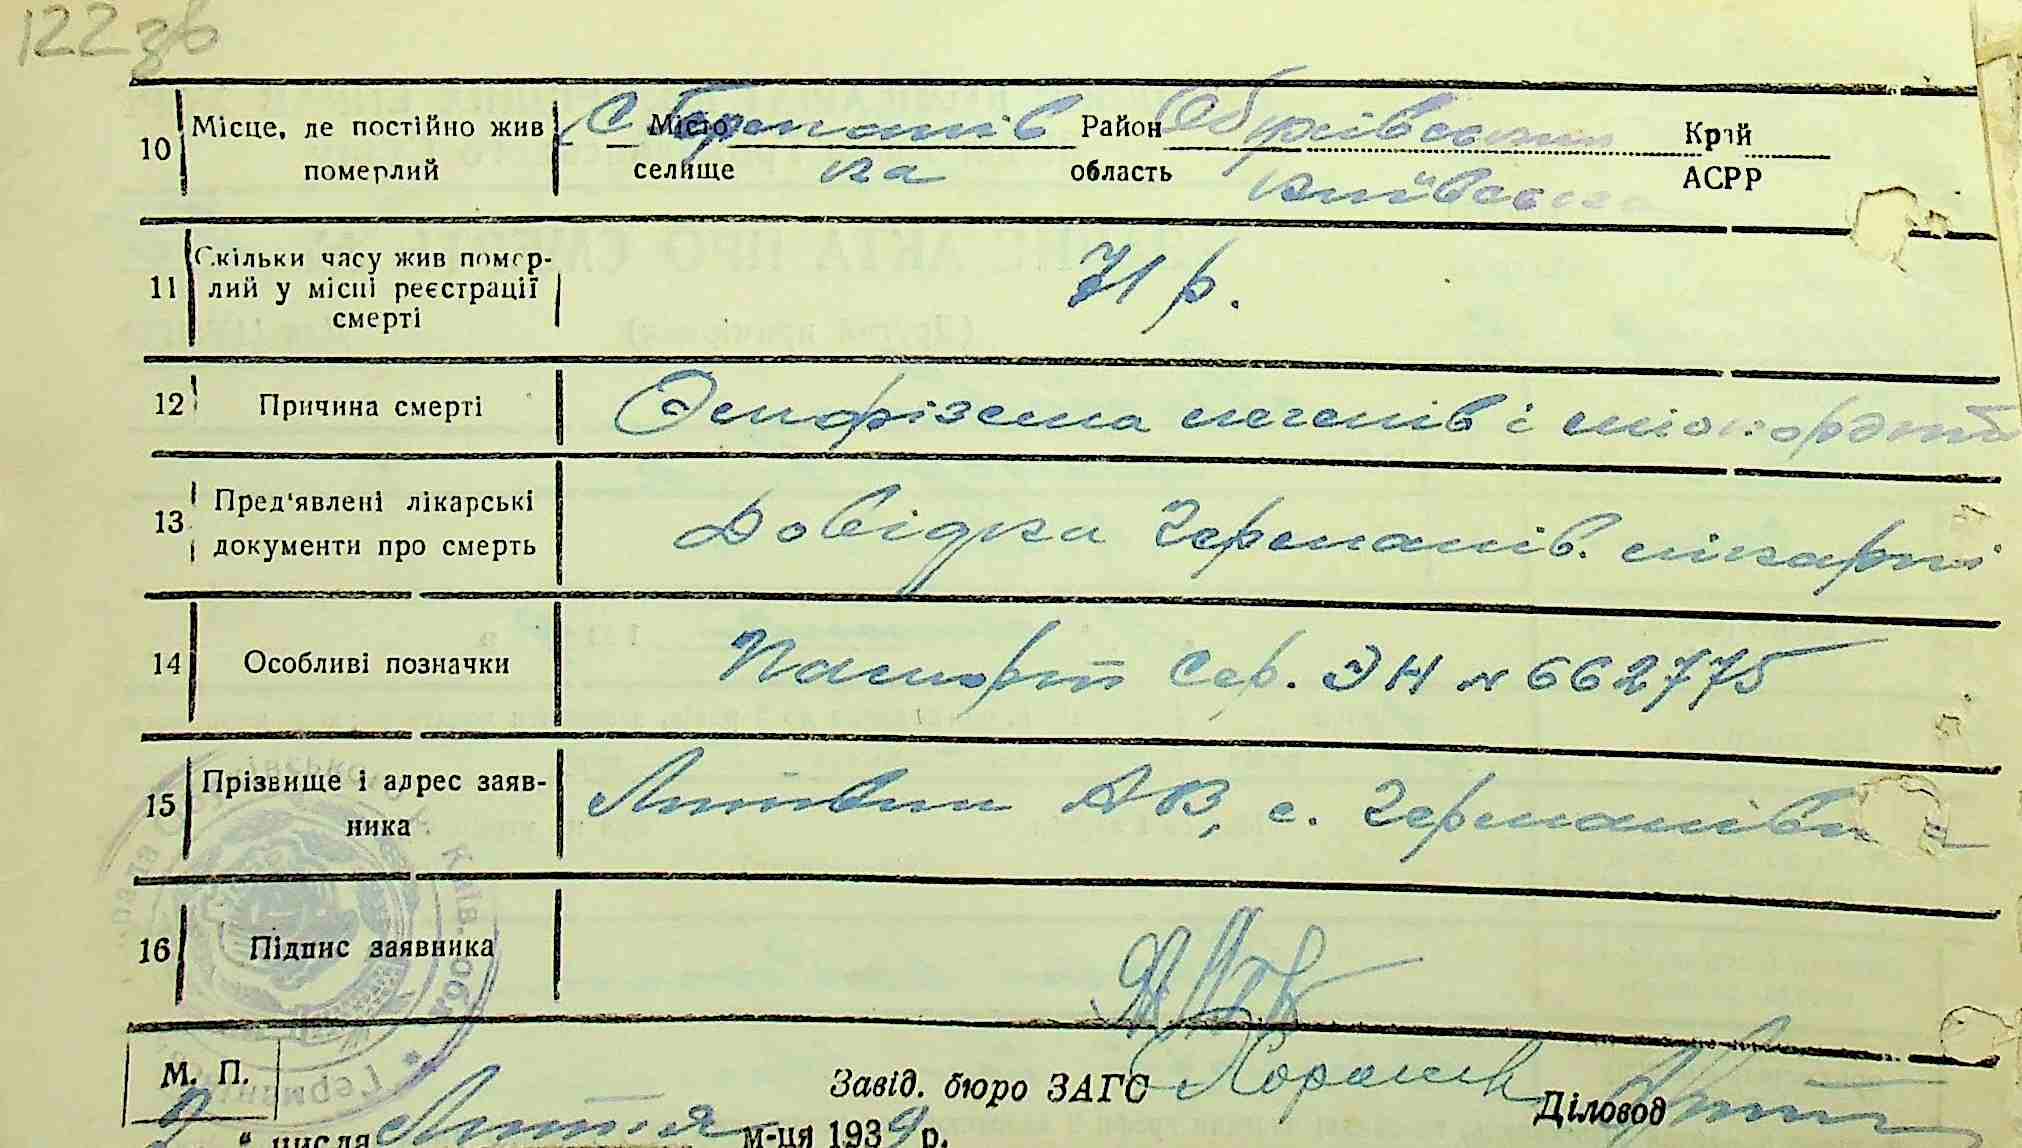 122 зв
10 Місце, де постійно жив померлий С. Германів Місто Район Обухівський Край
ка селище область Київська АСРР
11 Скільки часу жив помер-
лий у місці реєстрації
смерті
71 р.
12 Причина смерті Эмфізема легенів і міокордит
13 Пред'явлені лікарські
документи про смерть
Довідка Германів. лікарні
14 Особливі позначки Паспорт Сер. ЭН № 662775
15 Прізвище і адрес заяв-
ника
Литвин А В, с. Германівка
16 Підпис заявника
М. П.
Завід. бюро ЗАГС
Діловод
" числа Лютня м-ця 1939 р.